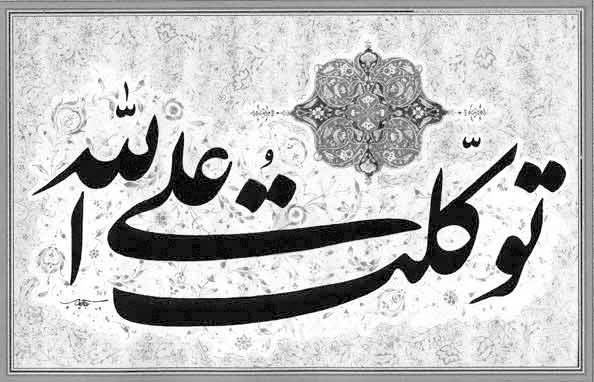 توكّلتُ علی الله